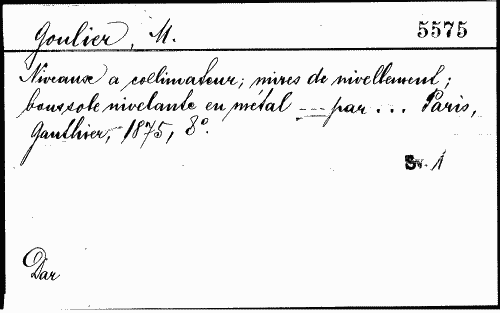 Goulier, M. 5575
Niveaux a collimateur; mires de nivellement;
boussole nivelante en métal --- par ... Paris,
Gauthier, 1875, 8º.
Sv. 1
Dar